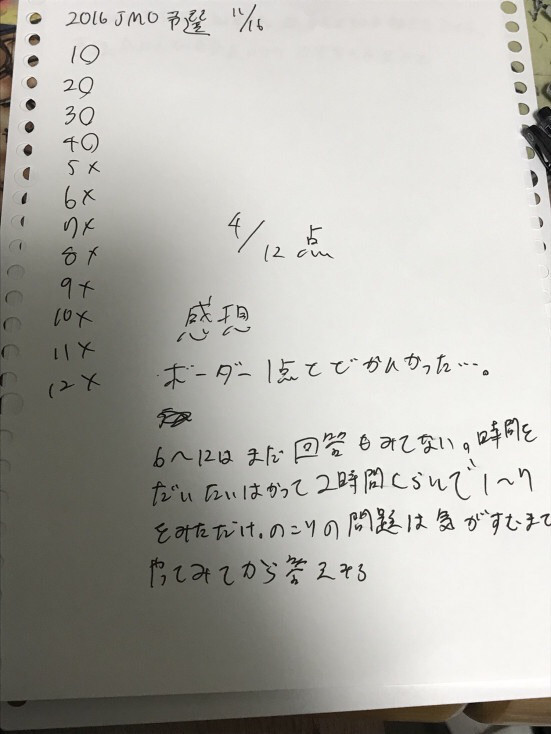 2016 JMO 予選 11/16
1○
2○
3○
4○
5×
6×
7×
8×
9×
10×
11×
12×
4/12点
感想
・ボーダー1点とどかんかった…。
6〜12はまだ回答もみてない。時間を
だいたいはかって2時間くらいで1〜7
をみただけ。のこりの問題は気がすむまで
やってみてから答えみる